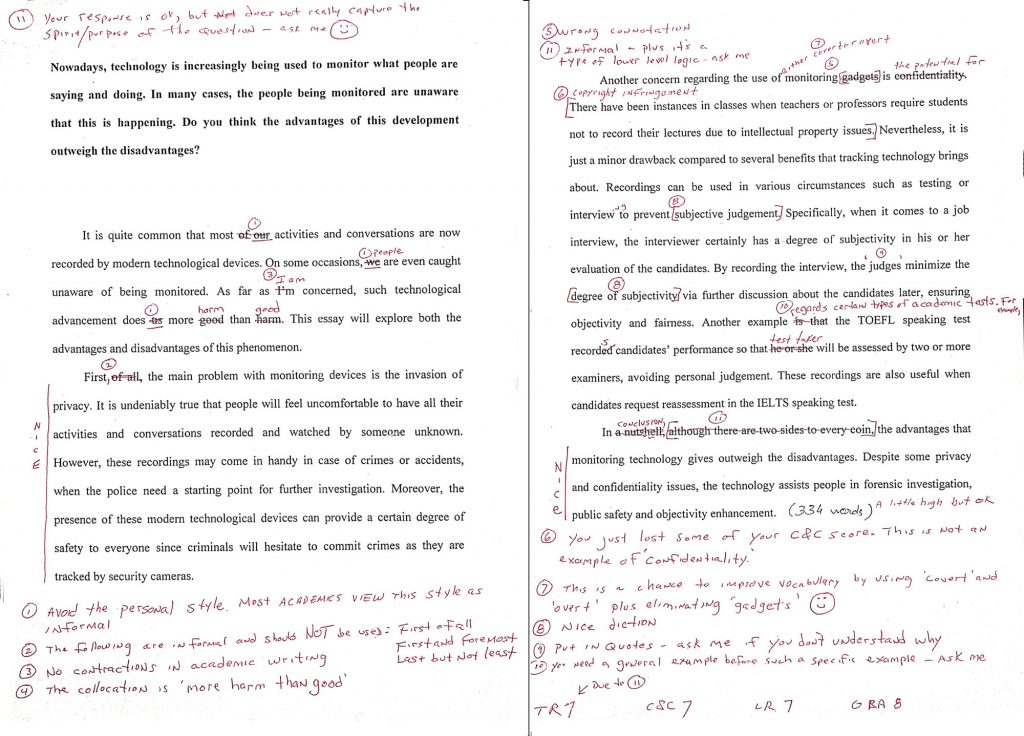 (11) Your response is ok, but Not does Not really capture the
spirit/purpose of the question – ask me
Nowadays, technology is increasingly being used to monitor what people are
saying and doing. In many cases, the people being monitored are unaware
that this is happening. Do you think the advantages of this development
outweigh the disadvantages?
(1)
It is quite common that most of our activities and conversations are now
(1) people
recorded by modern technological devices. On some occasions, we are even caught
(3) I am
unaware of being monitored. As far as I'm concerned, such technological
(1) harm good
advancement does us more good than harm. This essay will explore both the
advantages and disadvantages of this phenomenon.
(2)
First, of all, the main problem with monitoring devices is the invasion of
privacy. It is undeniably true that people will feel uncomfortable to have all their
activities and conversations recorded and watched by someone unknown.
However, these recordings may come in handy in case of crimes or accidents,
when the police need a starting point for further investigation. Moreover, the
presence of these modern technological devices can provide a certain degree of
safety to everyone since criminals will hesitate to commit crimes as they are
tracked by security cameras.
NicE
(1) Avoid the personal style. Most ACADEMICS VIEW this style as
informal
(2) The following are informal and should NOT be used: First of all
First and Foremost
Last but Not least
(3) No contractions in academic writing
(4) The collocation is 'more harm than good'
(5) wrong connotation
(11) Informal – plus it's a
type of lower level logic – ask me
(7) either covert or overt
(5) the potential for
Another concern regarding the use of monitoring [gadgets] is confidentiality.
(6) copyright infringement
[There have been instances in classes when teachers or professors require students
not to record their lectures due to intellectual property issues.] Nevertheless, it is
just a minor drawback compared to several benefits that tracking technology brings
about. Recordings can be used in various circumstances such as testing or
ng (8)
interview to prevent [subjective judgement.] Specifically, when it comes to a job
interview, the interviewer certainly has a degree of subjectivity in his or her
(9)
evaluation of the candidates. By recording the interview, the 'judges' minimize the
(8)
[degree of subjectivity] via further discussion about the candidates later, ensuring
(10) regards certain types of academic tests. For example,
objectivity and fairness. Another example is that the TOEFL speaking test
s test taker
recorded candidates' performance so that he or she will be assessed by two or more
examiners, avoiding personal judgement. These recordings are also useful when
candidates request reassessment in the IELTS speaking test.
conclusion, (11)
In a nutshell, [although there are two sides to every coin,] the advantages that
monitoring technology gives outweigh the disadvantages. Despite some privacy
and confidentiality issues, the technology assists people in forensic investigation,
public safety and objectivity enhancement. (334 words) A little high but ok
Nice
(6) You just lost some of your C&C score. This is Not an
example of 'Confidentiality.'
(7) This is a chance to improve vocabulary by using 'covert' and
'overt' plus eliminating 'gadgets'
(8) Nice diction
(9) Put in Quotes – ask me if you don't understand why
(10) You need a general example before such a specific example – Ask me
Due to (11)
TR 7 C&C 7 LR 7 GRA 8